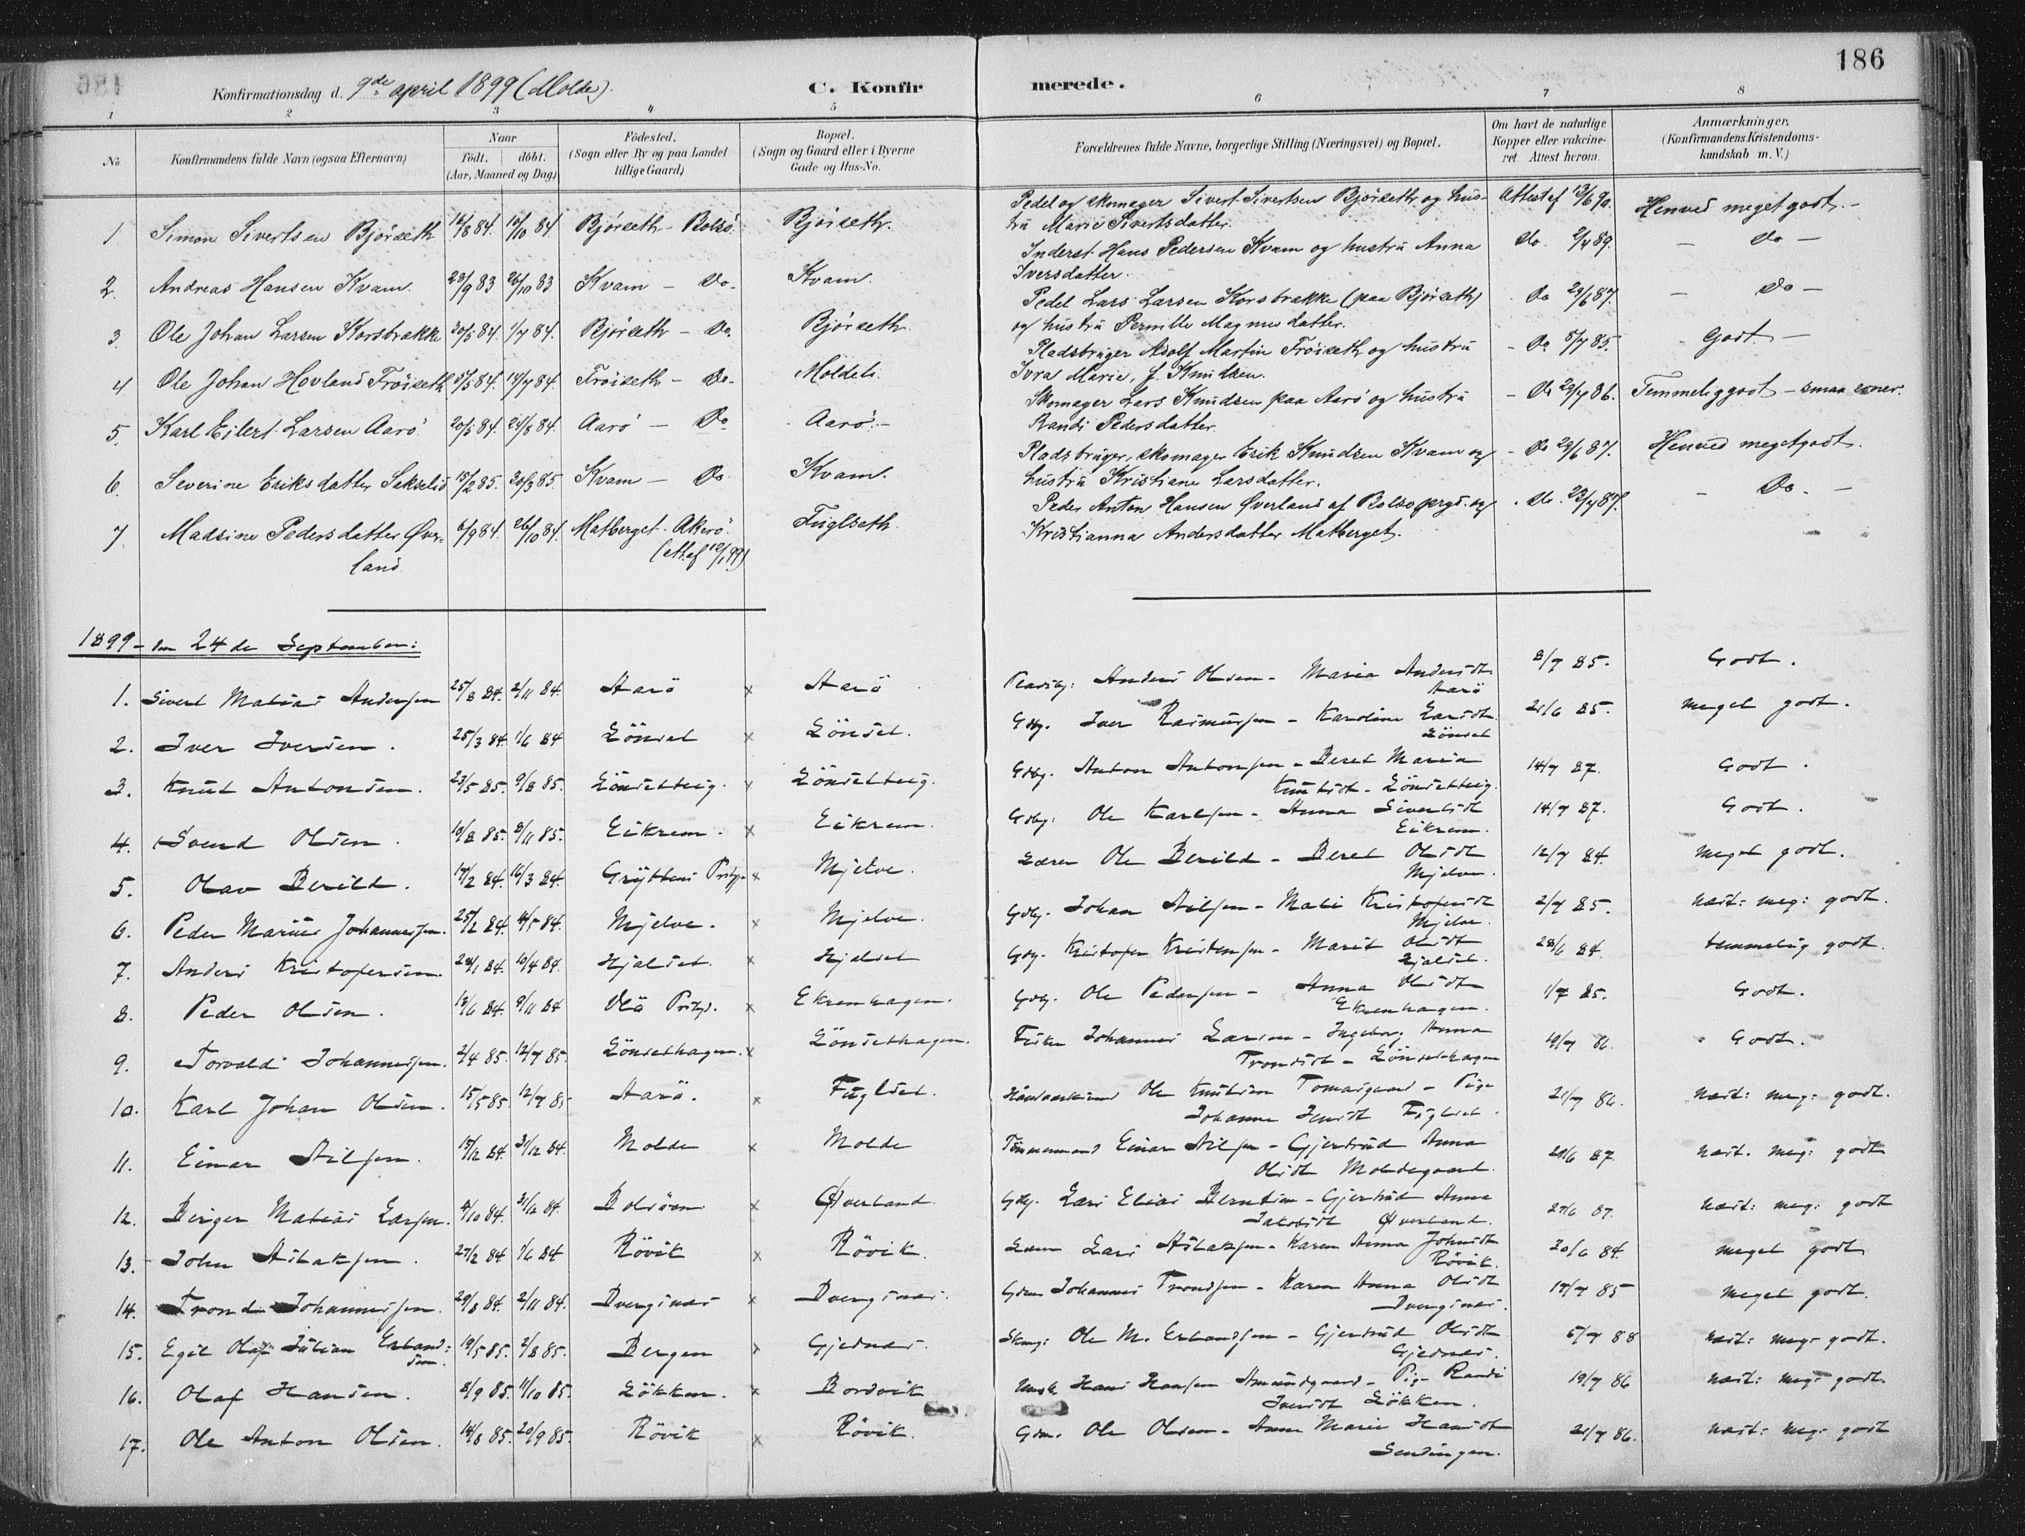 186
Konfirmationsdag d. 9de april 1899 (Molde). C. Konfirmerede.
1 2 3 4 5 6 7 8
No Konfirmandens fulde Navn (ogsaa Efternavn) Naar födt. döbt. (Aar, Maaned og Dag) Födested. (Sogn eller By og paa Landet tillige Gaard) Bopæl. (Sogn og Gaard eller i Byerne Gade og Hus-No. Forældrenes fulde Navne, borgerlige Stilling (Næringsvei) og Bopæl. Om havt de naturlige Kopper eller vakcineret. Attest herom. Anmærkninger. (Konfirmandens Kristendomskundskab m. V.)
1 Simon Sivertsen Björseth 84. 84. Björseth - Bolsö. Björseth. Pedel og skomager Sivert Sivertsen Björseth og hustru Marie Sivertsdatter. Attest af 13/6 90. Henved meget godt. -
2. Andreas Hansen Kvam. 23/9 83 26/10 83 Kvam - Do- Kvam. Inderst Hans Pedersen Kvam og hustru Anna Iversdatter. Do. 2/7 89. - Do -
3. Ole Johan Larsen Korsbrække 20/5 84. 1/7 84. Björseth - Do- Björseth. Pedel Lars Larsen Korsbrække (paa Björseth) og hustru Pernille Magnusdatter. - Do 29/6 87. - Do -
4 Ole Johan Hovland Tröiseth 84. 84. Tröiseth - Do- Moldeli. Pladsbruger Adolf Martin Tröiseth og hustru Ivra Marie, f. Knudsen. - Do 8/7 85. - Godt -
5. Karl Eilert Larsen Aarö 20/5 84. 24/8 84. Aarö - Do Aarö. - Skomager Lars Knudsen paa Aarö og hustru Randi Pedersdatter. - Do 86. Temmelig godt - smaa evner.
6. Severine Eriksdatter 15/2 85. 85. Kvam - Do Kvam. Pladsbruger, skomager Erik Knudsen Kvam og hustru Kristiane Larsdatter. - Do 29/6 87. Henved meget godt.
7. Madsine Pedersdatter Överland 6/9 84. 26/10 84. Matberget - Akerö (att. af 12/1 99) Fuglseth Peder Anton Hansen Överland af Bolsö prgd. og Kristianna Andersdatter Matberget. - Do. 87. - Do. -
1899 - den 24de September:
1. Sivert Matias Andersen 25/8 84. 2/11 84. Aarö x Aarö Anders Olsen - Maria Andersdt. Aarö 8/7 85. Godt.
2. Iver Iversen. 25/3 84. 1/6 84 Lönset x Lönset. Gdbg. Iver Rasmussen - Karoline Larsdt. Lönset 21/6 85. meget godt.
3. Knut Antonsen. 23/5 85. 9/8 85. Lönsetteig. x Lönsetteig. Gdbg. Anton Antonsen - Beret Maria Knutsdt - Lönsetteig. 14/7 87. Godt.
4. Svend Olsen. 10/8 85. 8/11 85. Eikrem. x Eikrem. Gdbg: Ole Karlsen - Anna Sivertsdt Eikrem. 14/7 87. Godt.
5. Olav Berild. 84. 16/3 84. Gryttens Prstgj. x Mjelve. Lærer Ole Berild - Beret Olsdt Mjelve. 12/7 84. meget godt.
6. Peder Marius Johannessen. 25/2 84. 84. Mjelve. x Mjelve. Gdbg. Johan Nilsen - Mali Kristofersdt Mjelve. 2/7 85. næst: meg: godt.
7. Anders Kristofersen. 84. 10/4 84. Hjelset. x Hjelset Gdbg. Kristofer Kristensen - Marit Olsdt Hjelset. 28/6 84. temmelig godt.
8. Peder Olsen. 84. 9/11 84 Veö Prstgj. x Ekrenhagen. Gdbg. Ole Pedersen - Anna Olsdt Ekrenhagen. 1/7 85. Godt.
9. Torvald Johannessen. 2/4 85. 12/7 85. Lönsethagen. x Lönsethagen. Fisker Johannes Larsen - Ingeborg Anna Trondsdt - Lönsethagen 19/7 86. Godt.
10. Karl Johan Olsen. 15/5 85. 12/7 85 Aarö. x Fuglset. Ole Knutsen Tomasgaard - Pige Johanne Jensdt Fuglset. 21/7 86. næst: meg: godt.
11. Einar Nilsen. 15/12 84. 31/12 84. Molde x Molde Tömmermand Einar Nilsen - Gjertrud Anna Olsdt Moldegaard. 87. næst. meg: godt
12. Birger Matias Larsen. 84. 84. Bolsöen x Överland. Gdbg. Lars Elias Berntsen - Gjertrud Anna Jakobsdt Överland. 87. næst: meg: godt
13. John Aslaksen. 27/2 84. 84 Rövik x Rövik. Lærer Lars Aslaksen - Karen Anna Johnsdt Rövik. 20/6 84. meget godt
14. Trond Johannessen. 29/8 84. 2/11 84. Dvergsnes x Dvergsnes. Johannes Trondsen - Karen Anna Olsdt Dvergsnes. 17/7 85 meget godt.
15. Egil Olaf Julian Erlandsen 19/5 85. 2/8 85. Bergen x Gjednes. Ole M. Erlandsen - Gjertrud Olsdt Gjednes. 5/7 88 næst: meg: godt.
16. Olaf Hansen. 8/9 85. 11/10 85. Lökken. x Bordvik Hans Hansen Amundgaard - Pige Randi Iversdt Lökken. 19/7 86 næst: meg: godt.
17. Ole Anton Olsen. 14/8 85. 20/9 85. Rövik x Rövik. Ole Olsen - Anne Marie Hansdt Sendingen. 21/7 86. næst: meg: godt